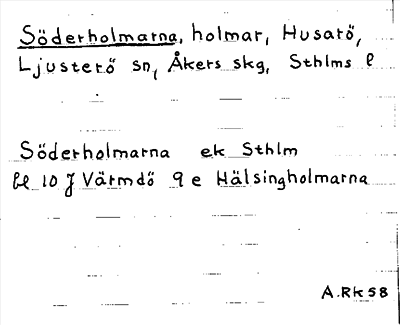 Söderholmarna, holmar, Husarö,
Ljusterö sn, Åkers skg, Sthlms l
Söderholmarna ek Sthlm
bl 10 J Värmdö 9 e Hälsingholmarna
A.RK 58